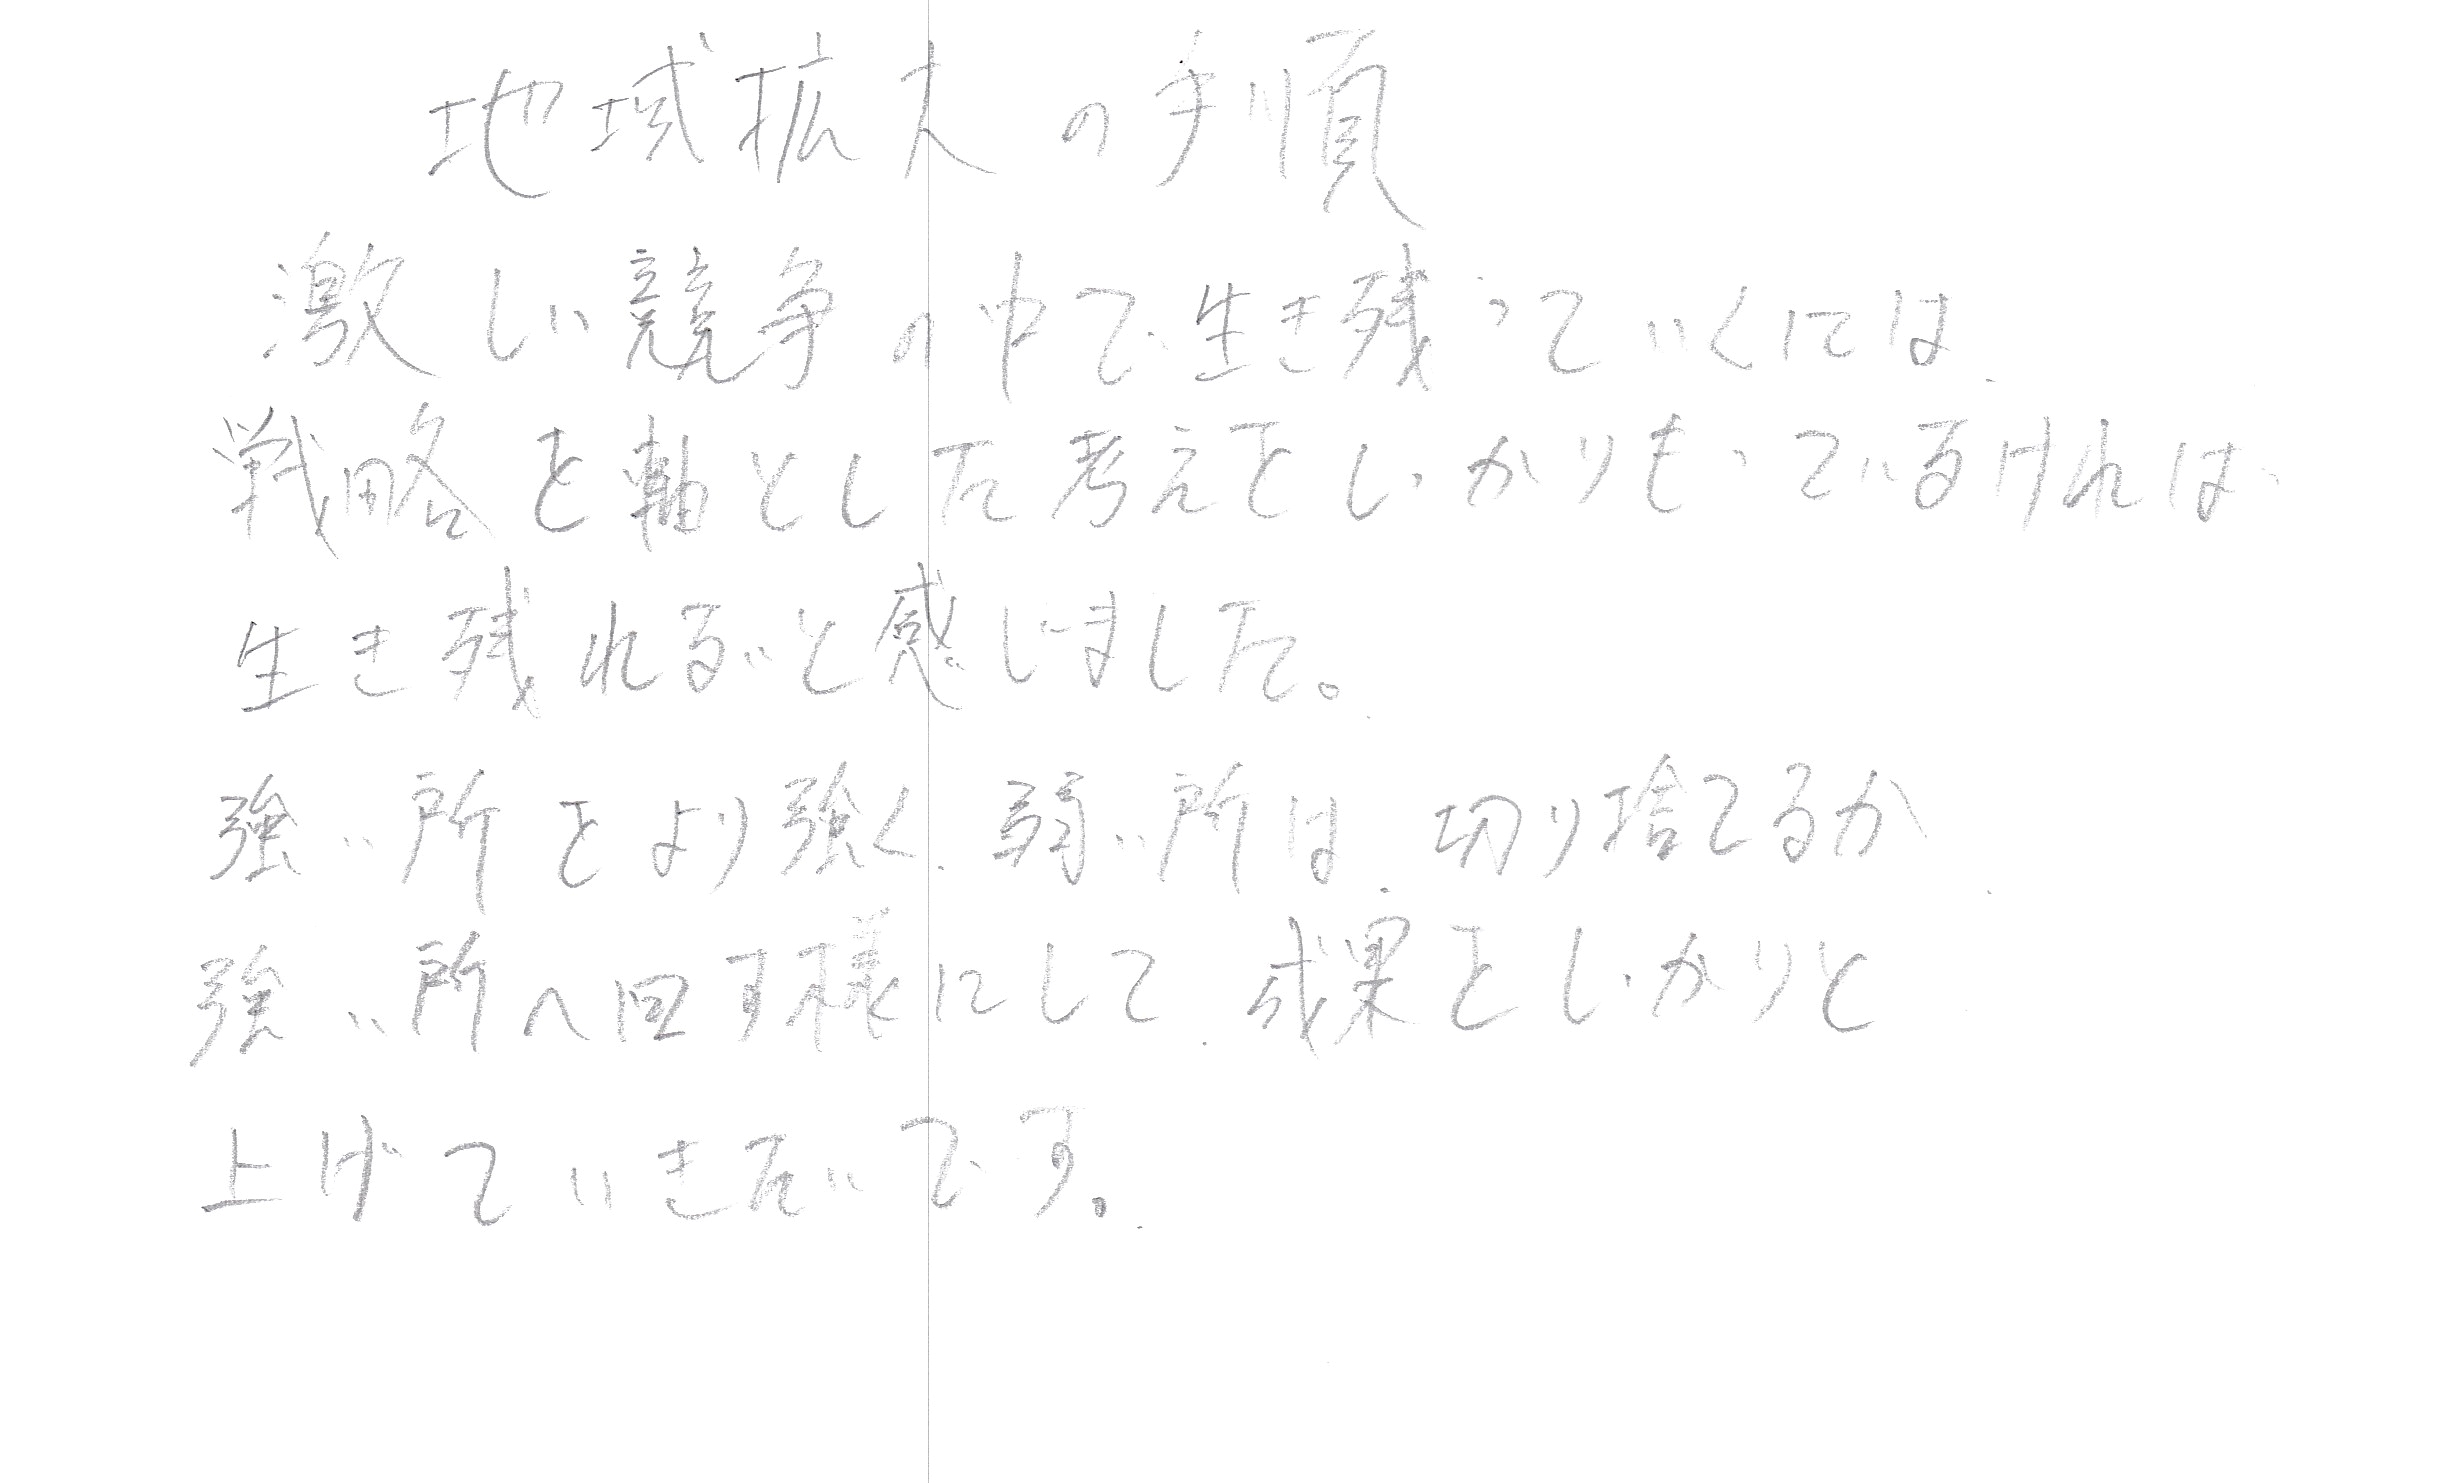 地域拡大の手順
激しい競争の中で生き残っていくには、
戦略を軸とした考えをしっかりもっているければ
生き残れるいと感じました。
強い所をより強く、弱い所は、切り捨てるか、
強い所へ回す様にして、成果をしっかりと
上げていきたいです。